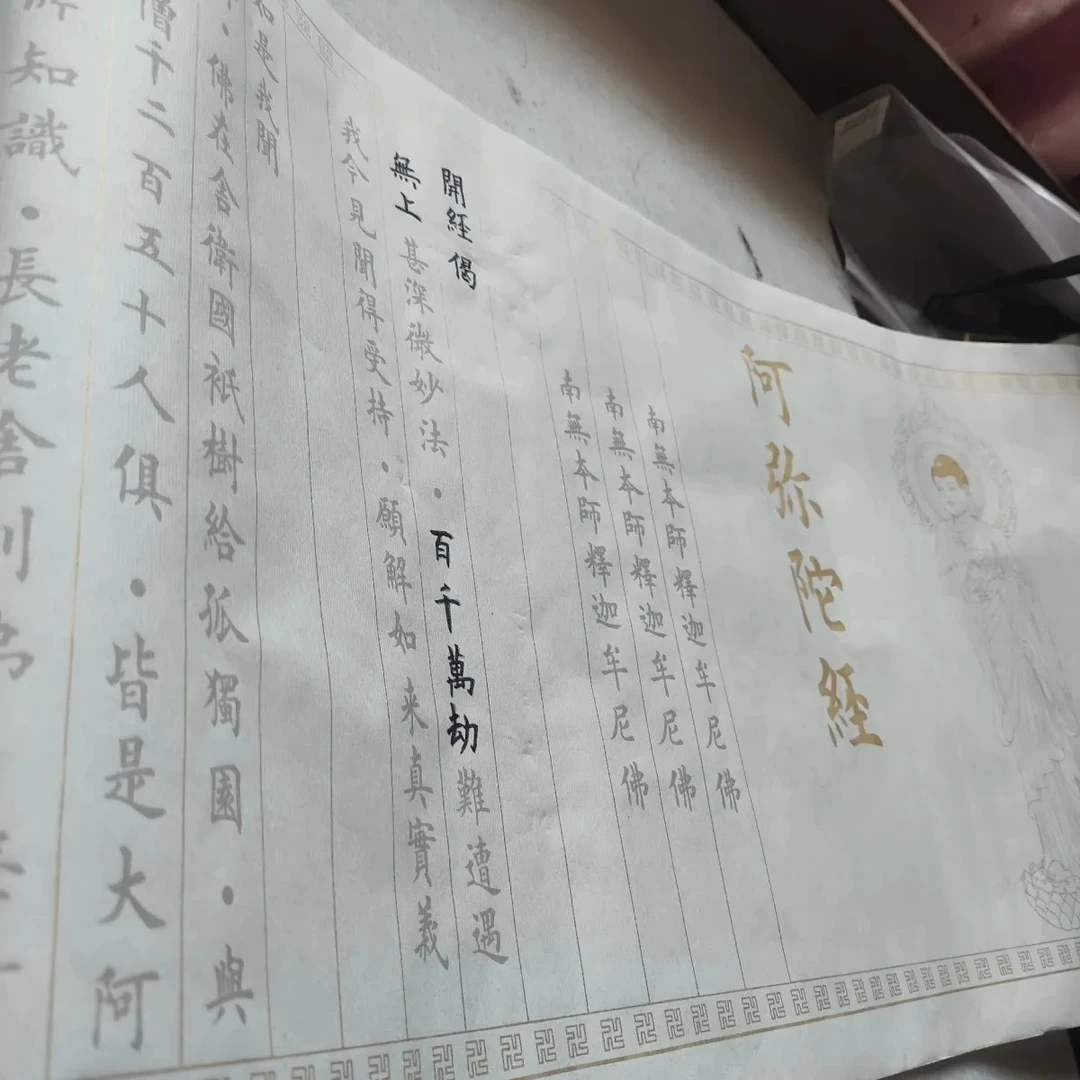 阿弥陀经
南無本師釋迦牟尼佛
南無本師釋迦牟尼佛
南無本師釋迦牟尼佛
開經偈
無上甚深微妙法・百千萬劫難遭遇
我今見聞得受持・願解如来真實義
如是我聞
佛在舍衛國祇樹給孤獨園・與
僧千二百五十人俱・皆是大阿
知識・長老舍利